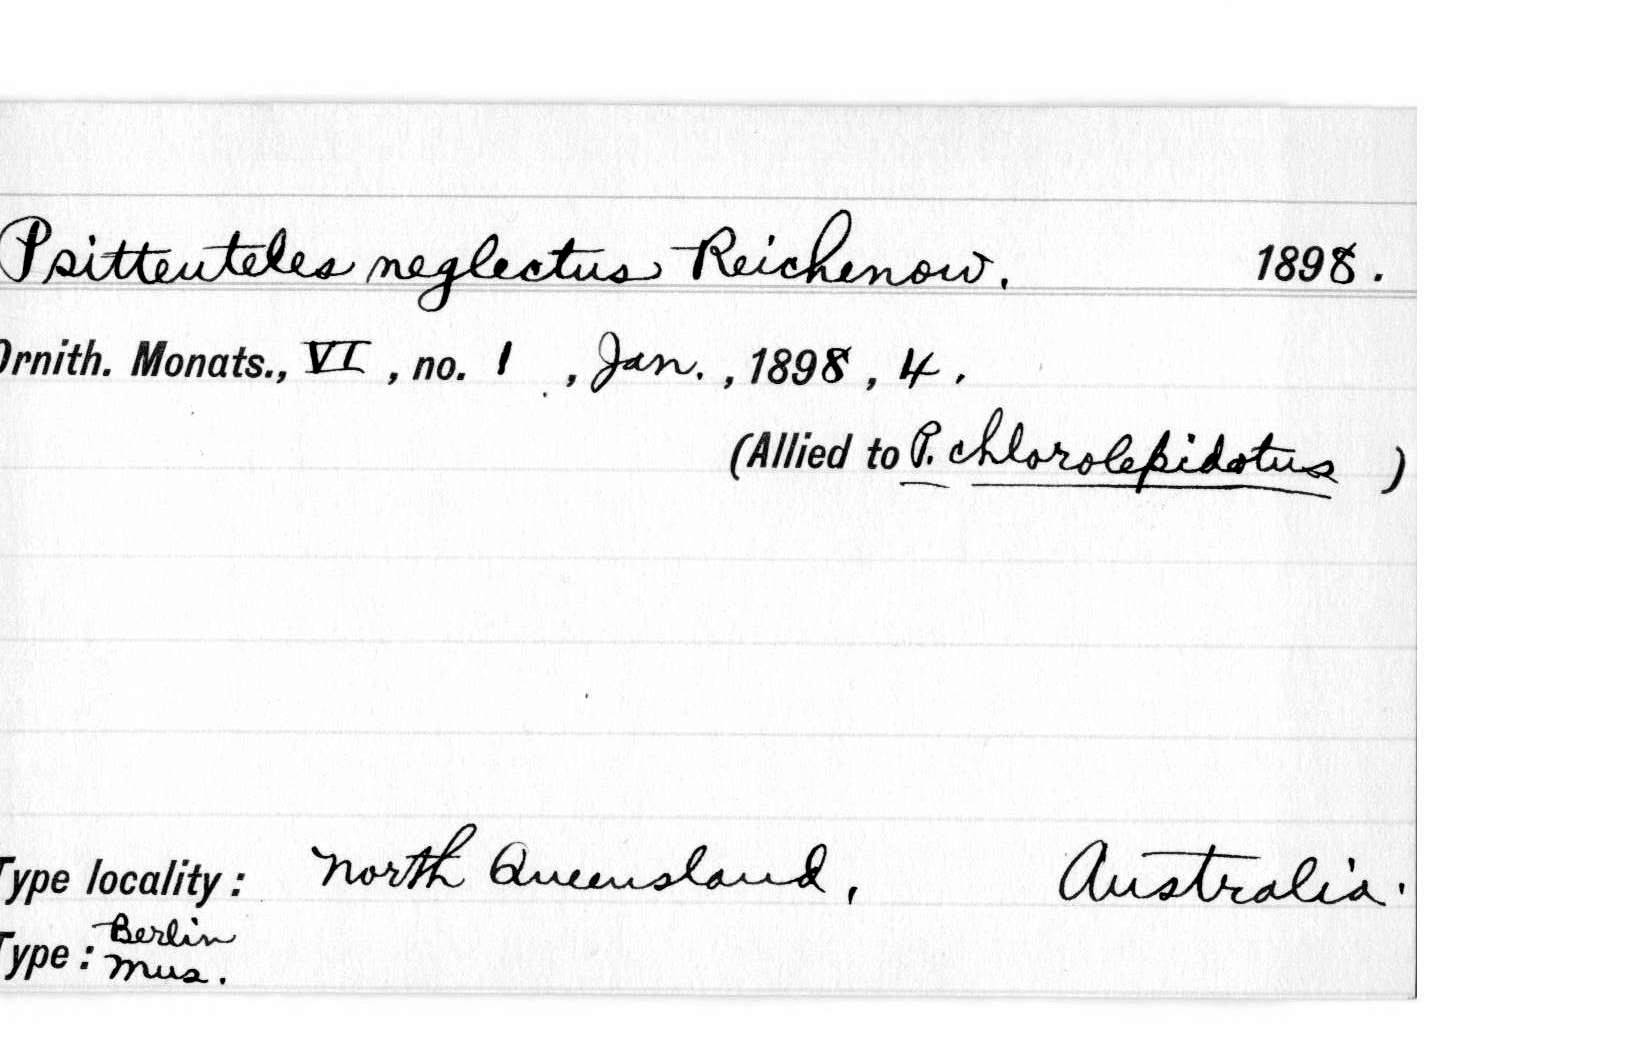 Psitteuteles neglectus Reichenow. 1898.
Ornith. Monats., VI, no. 1, Jan., 1898, 4.
(Allied to P. chlorolepidotus)
Type locality: North Queensland, Australia.
Type: Berlin
Mus.